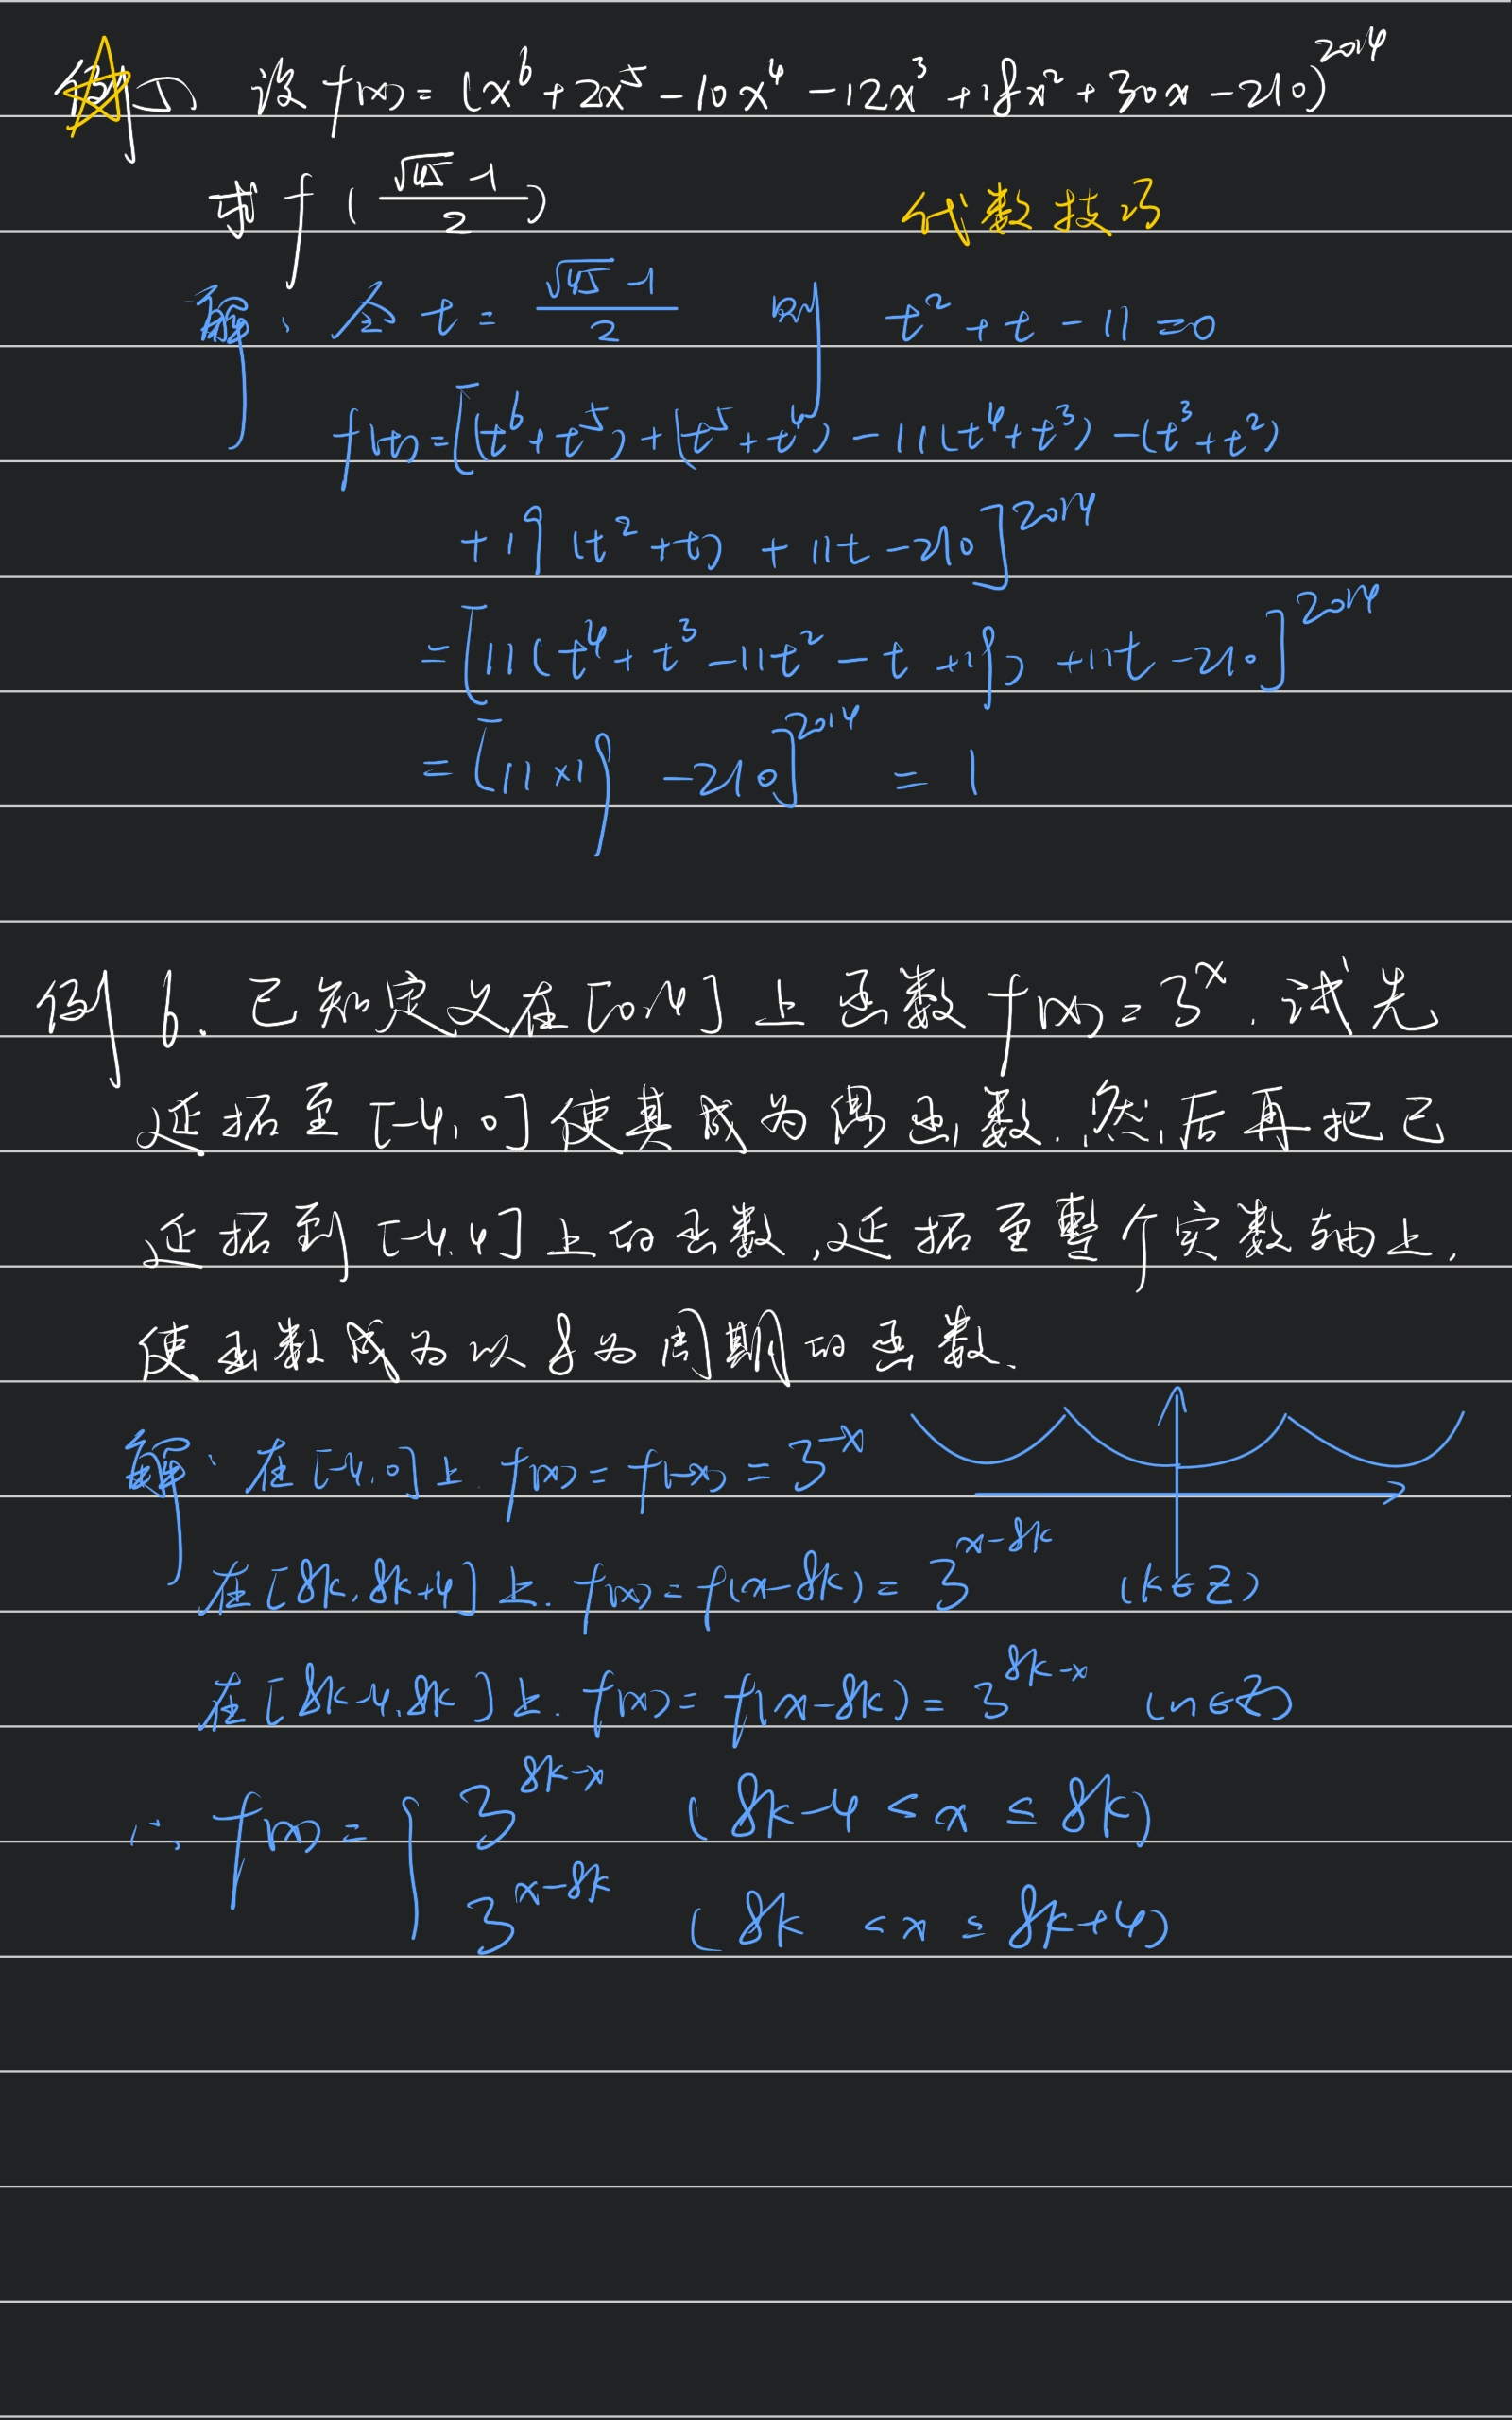 例5 设 f(x) = (x⁶ + 2x⁵ - 10x⁴ - 12x³ + 18x² + 30x - 210)²⁰¹⁴
求 f((√45 - 1)/2) 代数技巧
解: 令 t = (√45 - 1)/2 则 t² + t - 11 = 0
f(t) = [(t⁶ + t⁵) + (t⁵ + t⁴) - 11(t⁴ + t³) - (t³ + t²)
+ 19(t² + t) + 11t - 210]²⁰¹⁴
= [11(t⁴ + t³ - 11t² - t + 19) + 11t - 210]²⁰¹⁴
= [11×19 - 210]²⁰¹⁴ = 1
例6. 已知定义在[0,4]上函数 f(x) = 3ˣ. 试先
延拓至[-4,0]使其成为偶函数. 然后再把已
延拓到[-4,4]上的函数,延拓至整个实数轴上,
使函数成为以8为周期的函数.
解: 在[-4,0]上 f(x) = f(-x) = 3⁻ˣ
在[8k, 8k+4]上. f(x) = f(x-8k) = 3^(x-8k) (k∈Z)
在[8k-4, 8k]上. f(x) = f(x-8k) = 3^(8k-x) (n∈Z)
∴ f(x) = { 3^(8k-x) (8k-4 < x ≤ 8k)
3^(x-8k) (8k < x ≤ 8k+4)